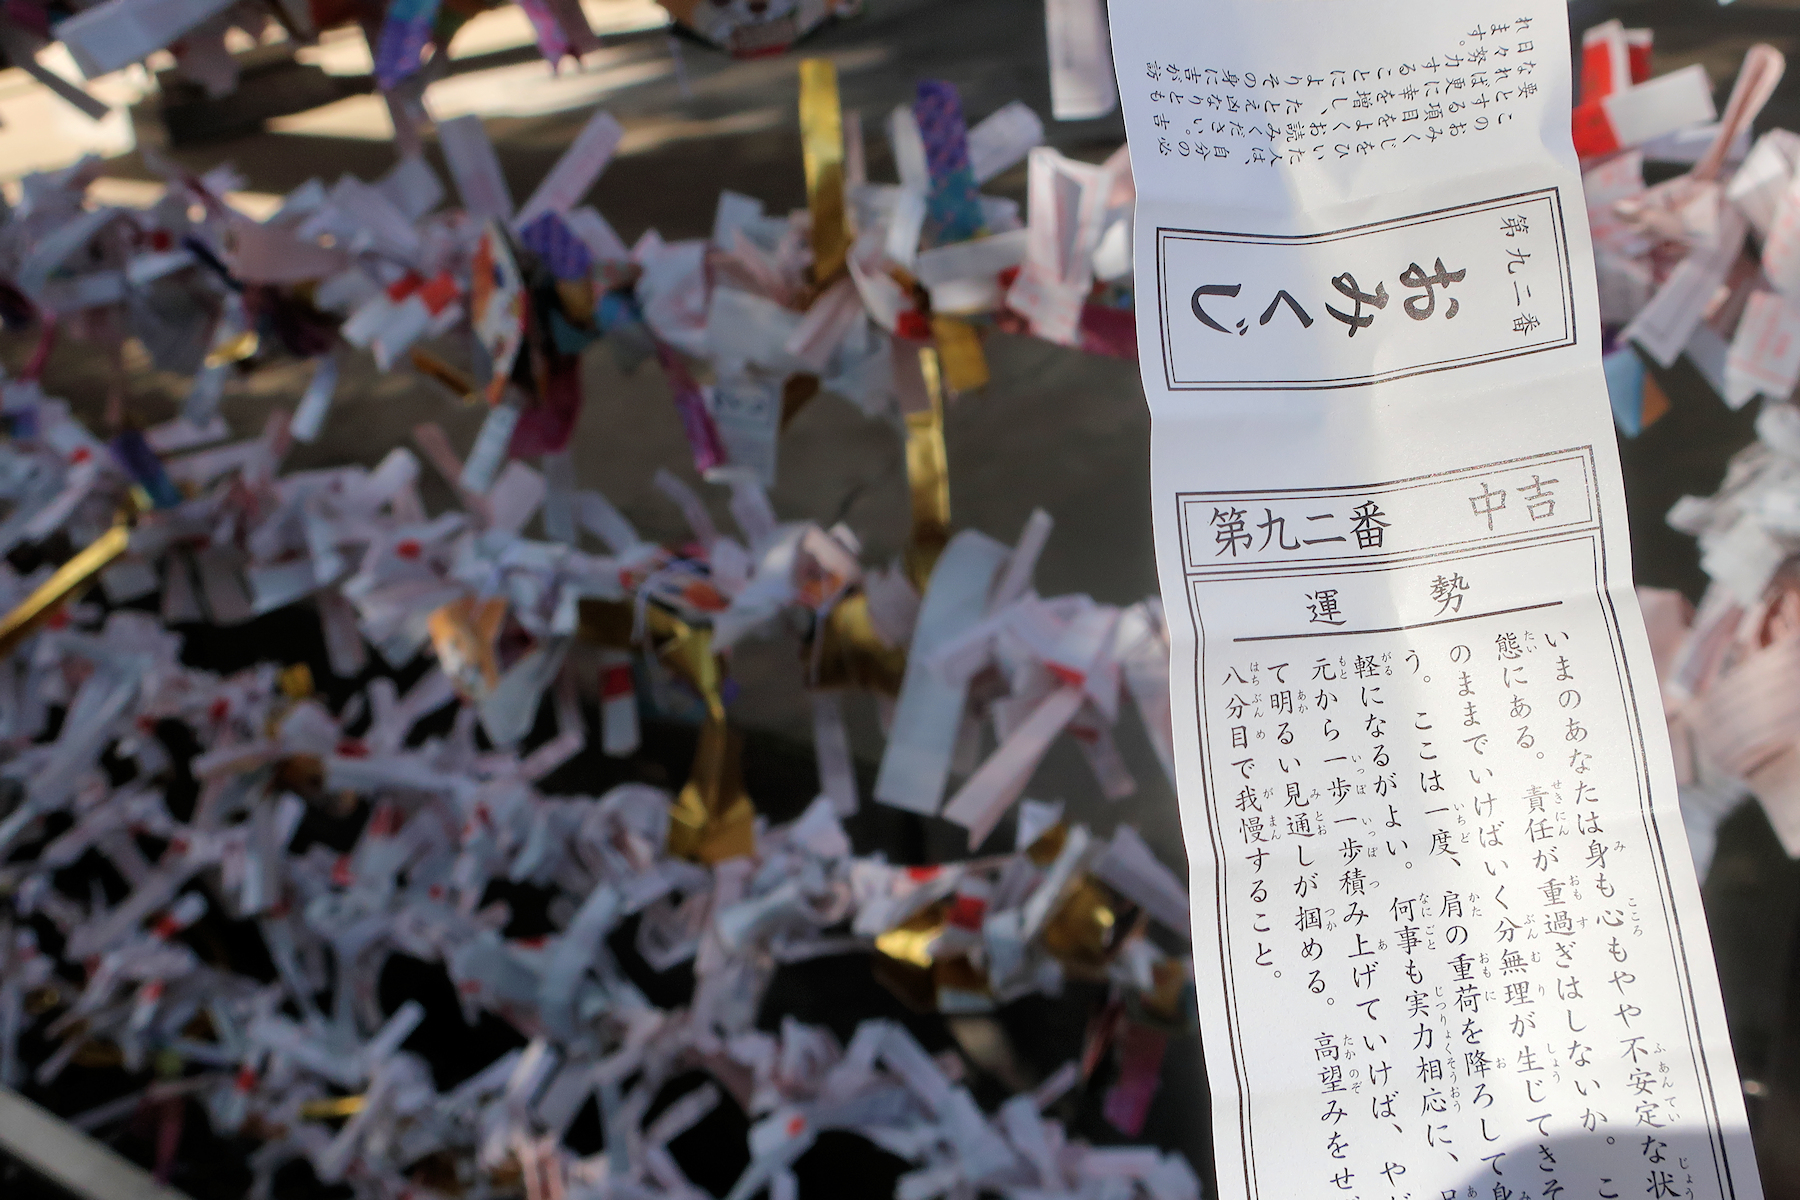 このおみくじをひいた人は、自分の必
要とする項目をよくお読みください。吉
なれば更に幸を増し、たとえ凶なりとも
日々努力することによりその身に吉が訪
れます。
第九二番
おみくじ
第九二番 中吉
運勢
いまのあなたは身も心もやや不安定な状
態にある。責任が重過ぎはしないか。こ
のままでいけばいく分無理が生じてきそ
う。ここは一度、肩の重荷を降ろして身
軽になるがよい。何事も実力相応に、
元から一歩一歩積み上げていけば、やが
て明るい見通しが掴める。高望みをせ
八分目で我慢すること。